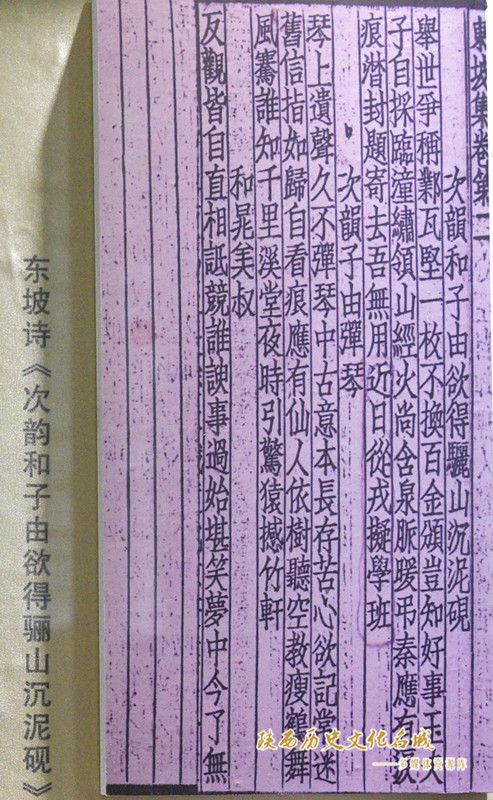 東坡集卷第二
次韻和子由欲得驪山沉泥硯
舉世爭稱鄴瓦堅一枚不換百金頒豈知好事王夫
子自採臨潼繡領山經火尚含泉脈暖弔秦應有淚
痕潸封題寄去吾無用近日從戎擬學班
次韻子由彈琴
琴上遺聲久不彈琴中古意本長存苦心欲記常迷
舊信指如歸自看痕應有仙人依樹聽空教瘦鶴舞
風騫誰知千里溪堂夜時引驚猿撼竹軒
和晁美叔
反觀皆自直相詆競誰諛事過始堪笑夢中今了無
东坡诗《次韵和子由欲得骊山沉泥砚》
陕西历史文化名城
——多媒体资源库